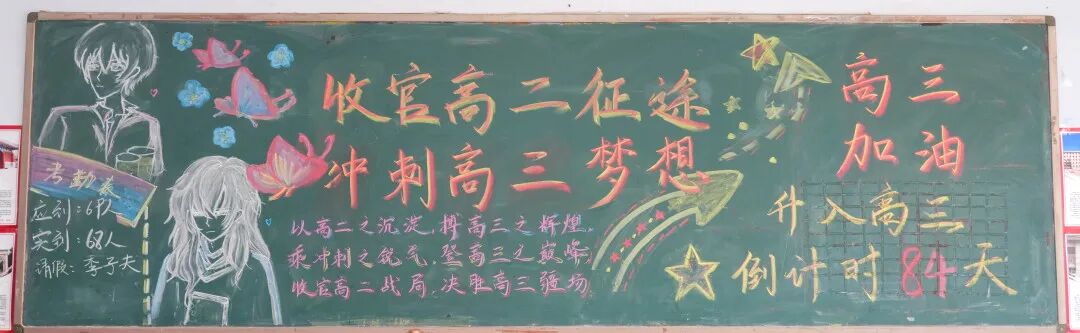 收官高二征途
冲刺高三梦想
以高二之沉淀，搏高三之辉煌，
乘冲刺之锐气，登高三之巅峰，
收官高二战局，决胜高三疆场
高三
加油
升入高三
倒计时84天
考勤表
应到：69人
实到：68人
请假：李子夫